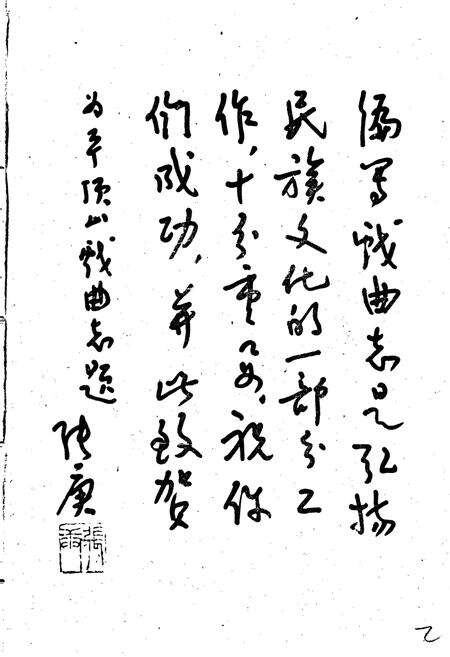 编写戏曲志是弘扬
民族文化的一部分工
作，十分重要，祝你
们成功，并此致贺
为平顶山戏曲志题
张庚
張庚